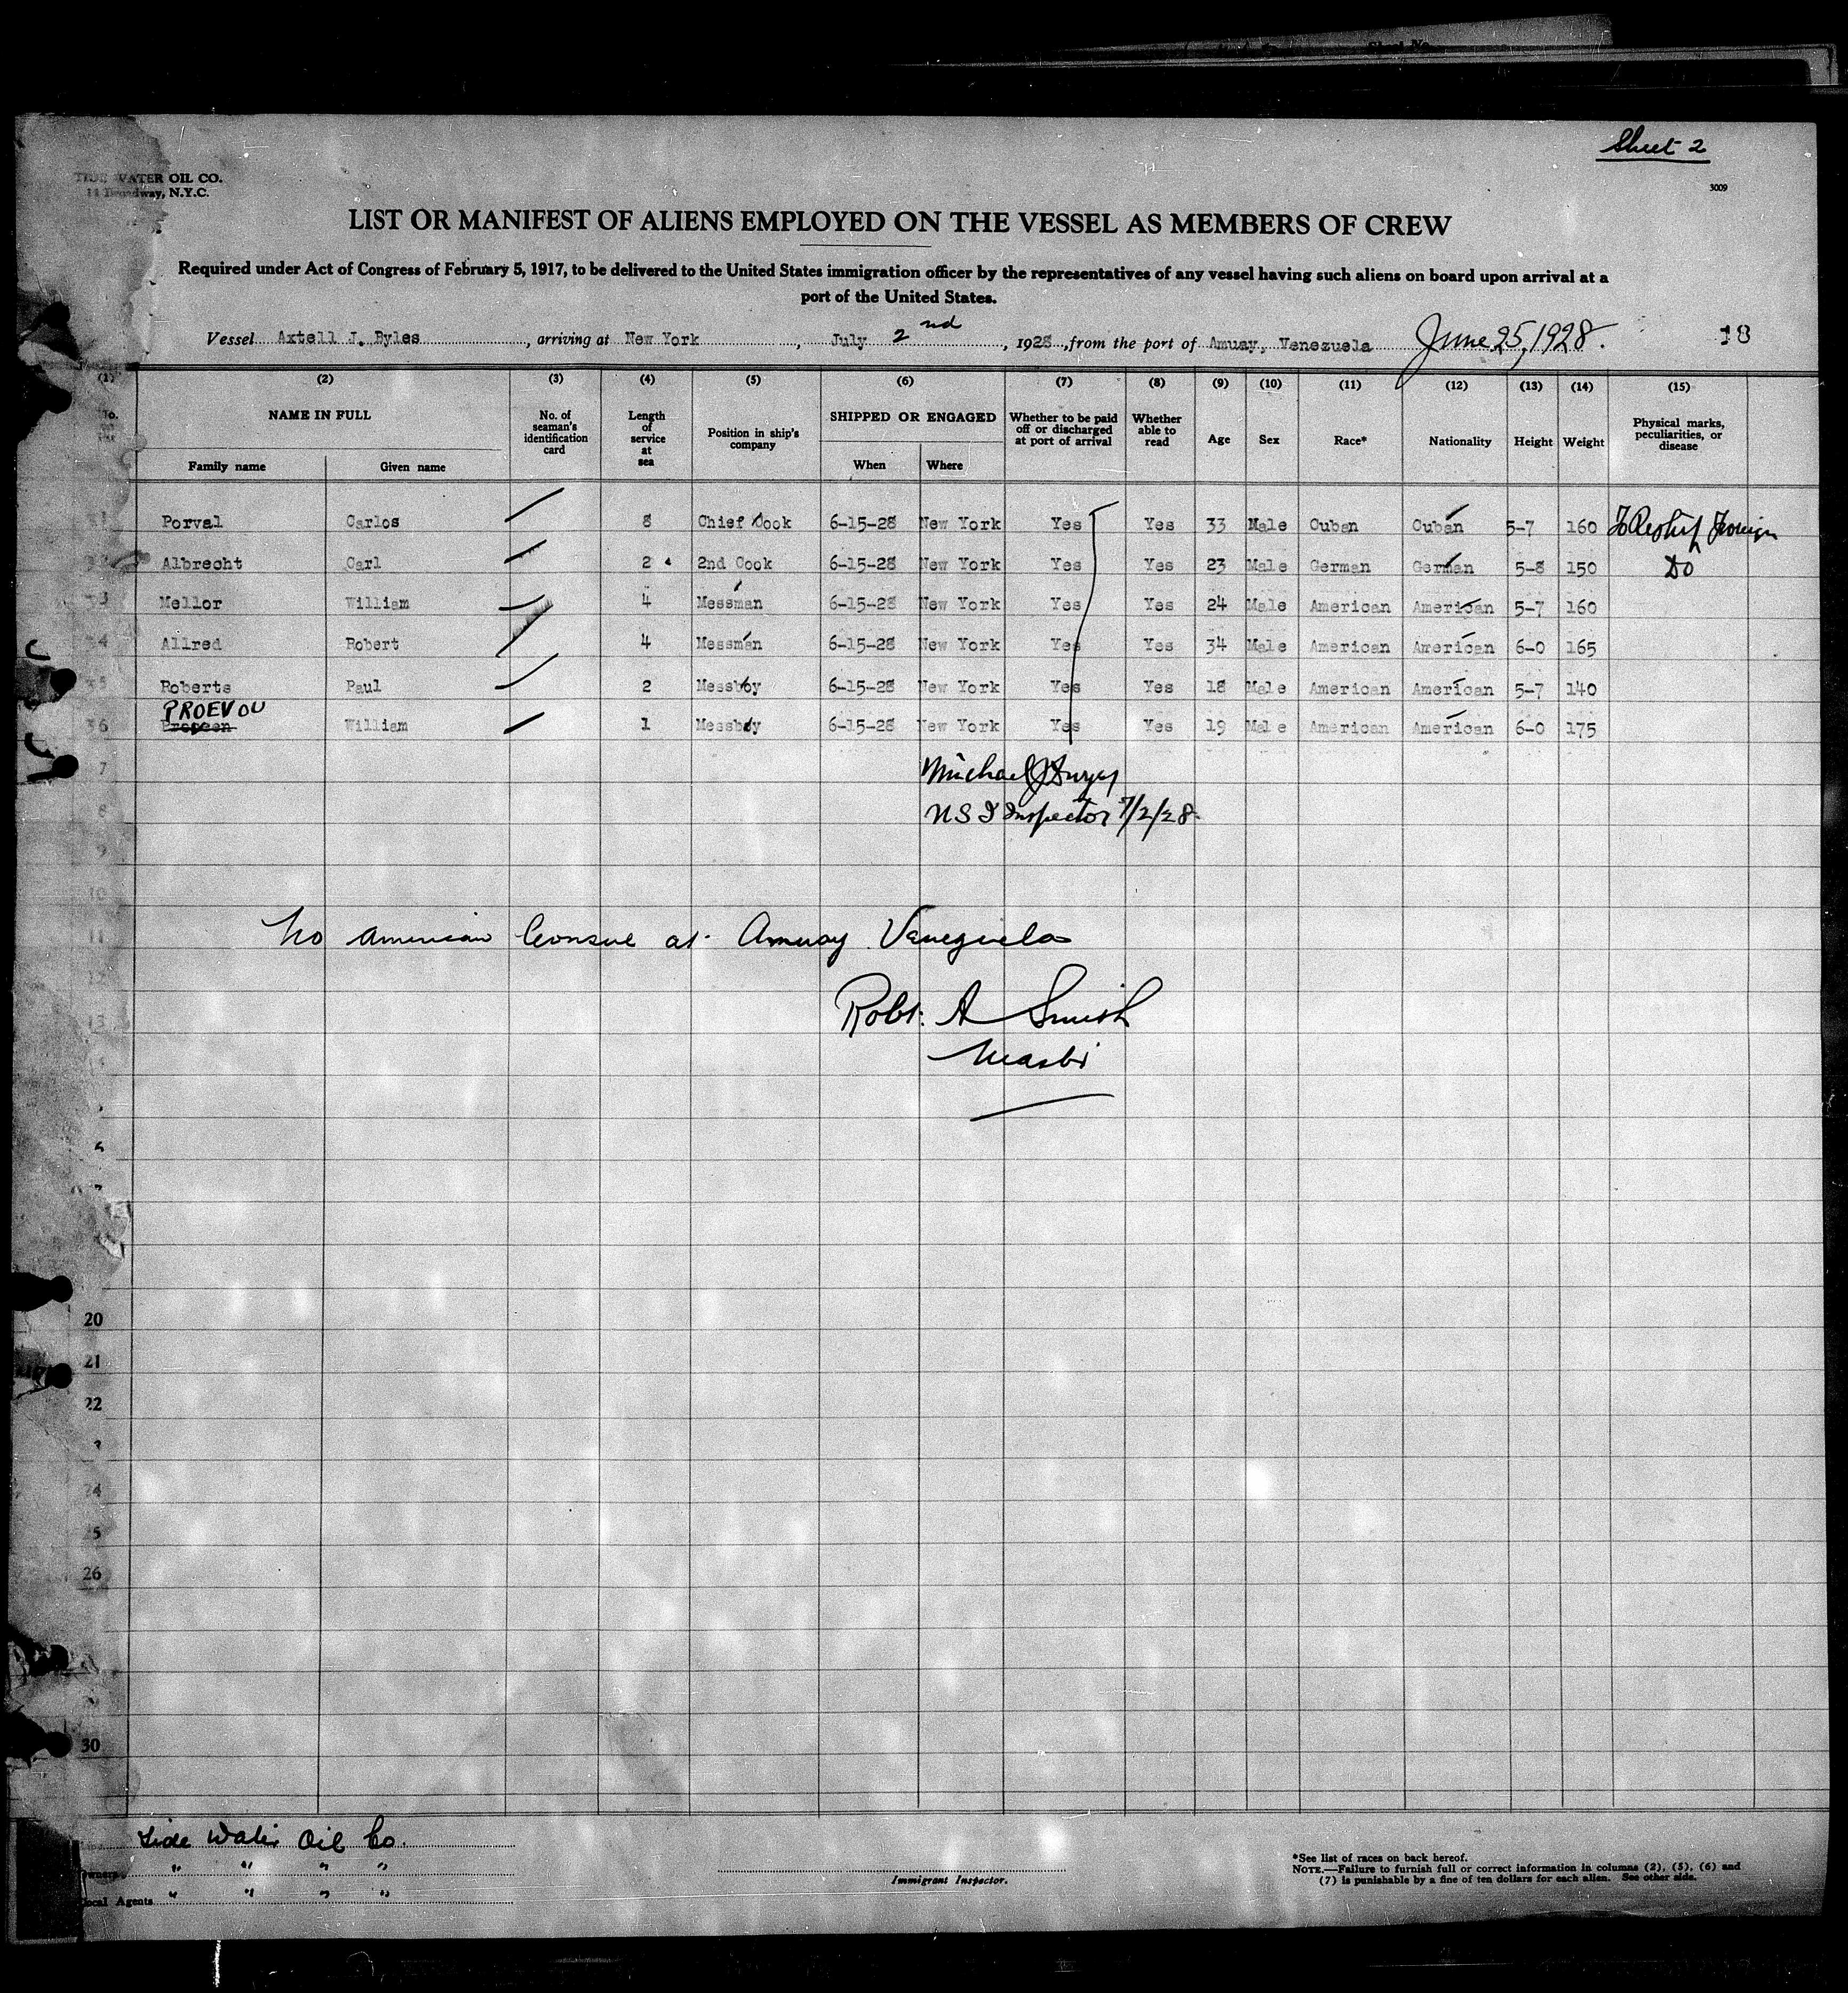 Sheet 2
TIDE WATER OIL CO.
11 Broadway, N.Y.C.
3009
LIST OR MANIFEST OF ALIENS EMPLOYED ON THE VESSEL AS MEMBERS OF CREW
Required under Act of Congress of February 5, 1917, to be delivered to the United States immigration officer by the representatives of any vessel having such aliens on board upon arrival at a
port of the United States.
Vessel Axtell J. Byles, arriving at New York, July 2nd, 1928, from the port of Amuay, Venezuela June 25, 1928. 18
(1) (2) (3) (4) (5) (6) (7) (8) (9) (10) (11) (12) (13) (14) (15)
No. NAME IN FULL Family name Given name No. of seaman's identification card Length of service at sea Position in ship's company SHIPPED OR ENGAGED When Where Whether to be paid off or discharged at port of arrival Whether able to read Age Sex Race* Nationality Height Weight Physical marks, peculiarities, or disease
31 Porval Carlos 8 Chief Cook 6-15-28 New York Yes Yes 33 Male Cuban Cuban 5-7 160 To Reship Foreign
32 Albrecht Carl 2 2nd Cook 6-15-28 New York Yes Yes 23 Male German German 5-8 150 Do
33 Mellor William 4 Messman 6-15-28 New York Yes Yes 24 Male American American 5-7 160
34 Allred Robert 4 Messman 6-15-28 New York Yes Yes 34 Male American American 6-0 165
35 Roberts Paul 2 Messboy 6-15-28 New York Yes Yes 18 Male American American 5-7 140
PROEVOU
36 William 1 Messboy 6-15-28 New York Yes Yes 19 Male American American 6-0 175
7 Michael J
8 U S I Inspector 7/2/28
9
10
11 No American Consul at Amuay Venezuela
12
13 Robt. A Smith
Master
6
20
21
22
24
5
26
30
Tide Water Oil Co.
Owners " " " "
Local Agents " " " "
Immigrant Inspector.
*See list of races on back hereof.
NOTE.—Failure to furnish full or correct information in columns (2), (5), (6) and
(7) is punishable by a fine of ten dollars for each alien. See other side.